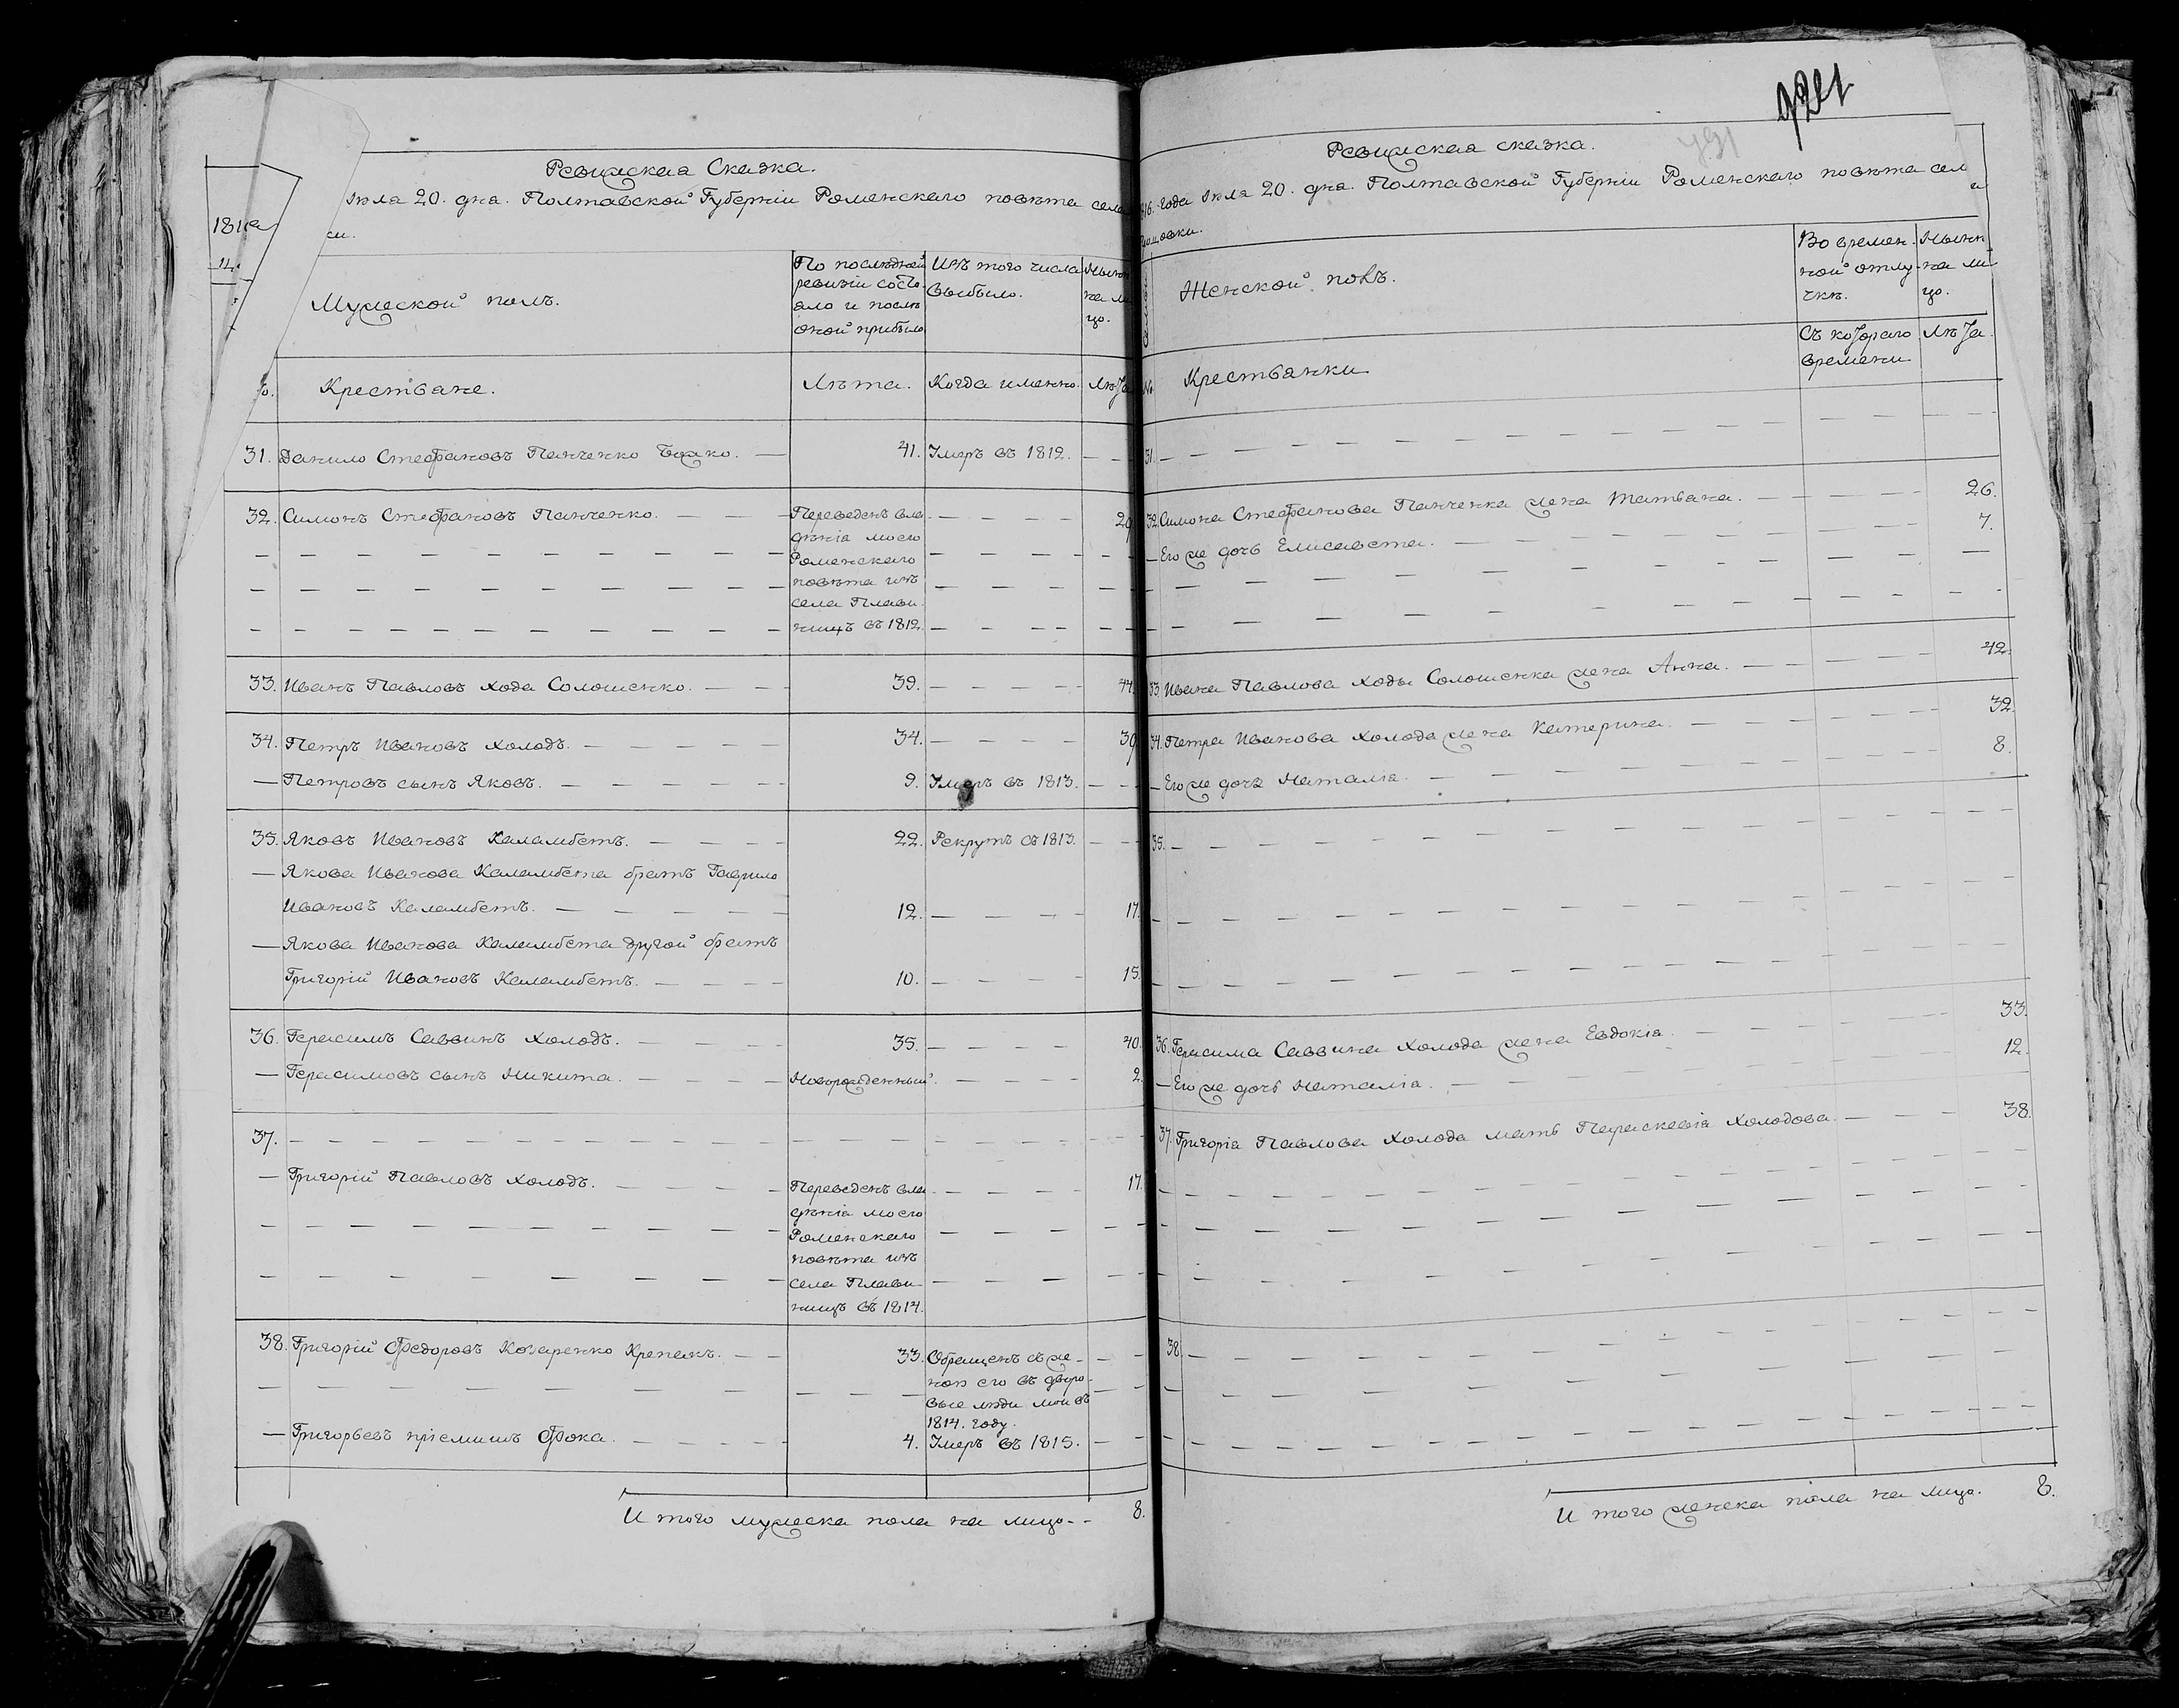 Ревизская Сказка.
Іюля 20. дня. Полтавской Губерніи Роменскаго повѣта села
181
Мужеской полъ.
По послѣдней ревизіи состояло и послѣ оной прибыло
Изъ того числа выбыло.
Нынѣ на лицо.
Крестьяне.
Лѣта.
Когда именно.
Лѣта
31. Данило Стефановъ Панченко — 41. Умеръ въ 1812. — —
32. Симонъ Стефановъ Панченко. — — — Переведенъ вла — — — — 29
дѣнія моего
Роменскаго
повѣта изъ
села Плави
нищъ въ 1812.
33. Иванъ Павловъ Хода Солошенко. — — — 39. — — — — — 44.
34. Петръ Ивановъ Холодъ. — — — — — 34. — — — — 39
— Петровъ сынъ Яковъ. — — — — — 9. Умеръ въ 1813. — —
35. Яковъ Ивановъ Каламбетъ. — — — — 22. Рекрутъ въ 1813. — —
— Якова Иванова Каламбета братъ Гаврило
Ивановъ Каламбетъ. — — — — — 12. — — — — 17.
— Якова Иванова Каламбета другой братъ
Григорій Ивановъ Каламбетъ. — — — — 10. — — — — 15.
36. Герасимъ Саввинъ Холодъ. — — — — 35. — — — — 40.
— Герасимовъ сынъ Никита. — — — — Новорожденный. — — — — 2.
37. — — — —
— Григорій Павловъ Холодъ. — — — — Переведенъ вла — — — — 17.
дѣнія моего
Роменскаго
повѣта изъ
села Плави
нищъ въ 1814.
38. Григорій Федоровъ Козаренко Крепакъ. — — 33. Обращенъ съ же-
ною его въ дворо-
вые люди мои въ
1814. году.
— Григорьевъ пріемышъ Фока. — — — — 4. Умеръ въ 1815. — —
И того мужеска пола на лицо - - 8.
921
791
Ревизская сказка.
1816. года Іюля 20. дня. Полтавской Губерніи Роменскаго повѣта села
Женской полъ.
Во временной отлучкѣ.
Нынѣ на лицо.
№
Крестьянки
Съ котораго времени
Лѣта.
31. — — — —
32. Симона Стефанова Панченка жена Татьяна. — — — — 26.
— Его же дочь Елисавета. — — — — 7.
33. Ивана Павлова Ходы Солошенка жена Анна. — — — — 42.
34. Петра Иванова Холода жена Катерина. — — — — 32.
— Его же дочь Наталія. — — — — 8.
35. — — — —
36. Герасима Саввина Холода жена Евдокія. — — — — 33.
— Его же дочь Наталія. — — — — 12.
37. Григорія Павлова Холода мать Параскевія Холодова. — — — 38.
38 — — — —
И того женска пола на лицо. 8.